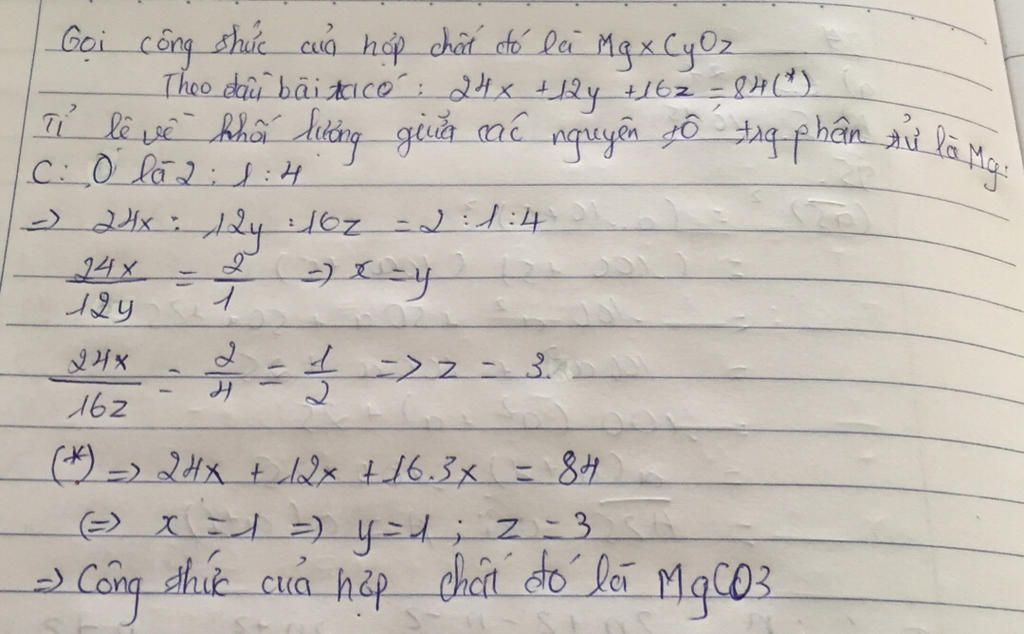 Gọi công thức của hợp chất đó là MgxCyOz
Theo đầu bài ta có: 24x + 12y + 16z = 84 (*)
Tỉ lệ về khối lượng giữa các nguyên tố trg phân tử là Mg:
C: O là 2 : 1 : 4
=> 24x : 12y : 16z = 2 : 1 : 4
24x/12y = 2/1 => x = y
24x/16z = 2/4 = 1/2 => z = 3
(*) => 24x + 12x + 16.3x = 84
(=> x = 1 => y = 1 ; z = 3
=> Công thức của hợp chất đó là MgCO3